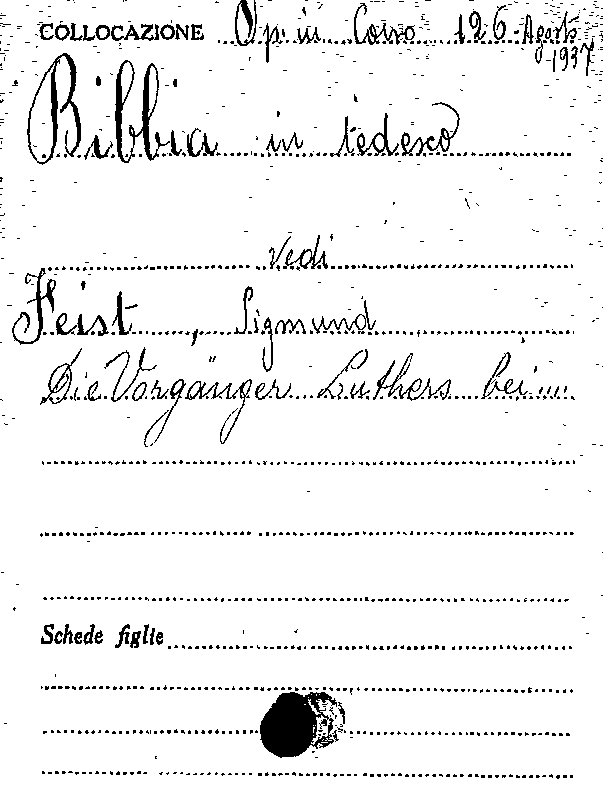 COLLOCAZIONE Op. in Corso 126 - Agosto
1937
Bibbia in tedesco
Vedi
Feist, Sigmund
Die Vorgänger Luthers bei....
Schede figlie